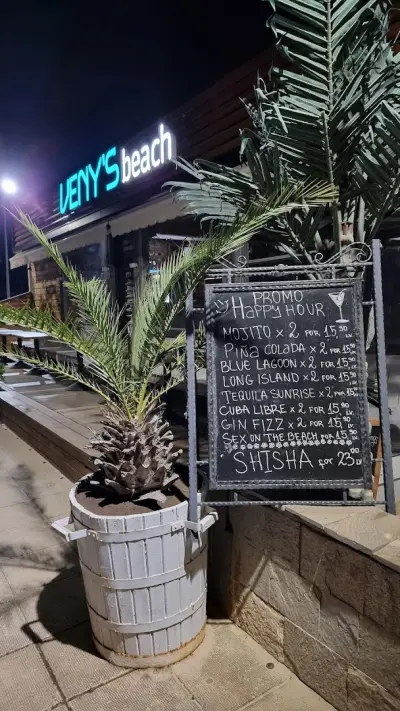 VENY'S beach
PROMO
HAPPY HOUR
MOJITO x 2 FOR 15.90 LV
PIÑA COLADA x 2 FOR 15.90
BLUE LAGOON x 2 FOR 15.90
LONG ISLAND x 2 FOR 15.90
TEQUILA SUNRISE x 2 FOR 15.90
CUBA LIBRE x 2 FOR 15.90 LV
GIN FIZZ x 2 FOR 15.90 LV
SEX ON THE BEACH FOR 15.90 LV
SHISHA FOR 23.00 LV